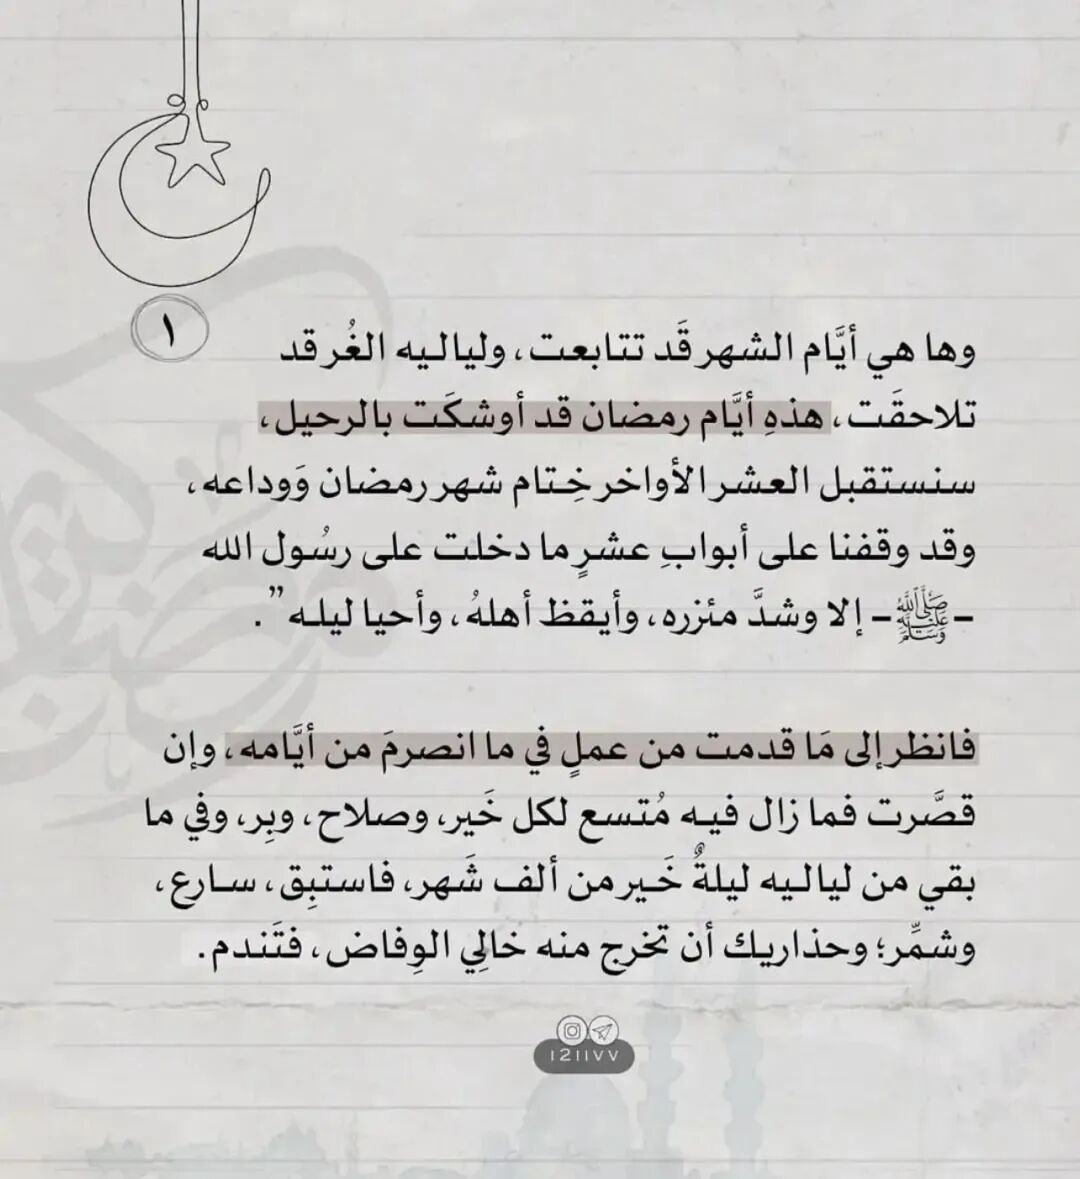 ١
وها هي أيَّام الشهر قَد تتابعت، ولياليه الغُر قد
تلاحقَت، هذهِ أيَّام رمضان قد أوشكَت بالرحيل،
سنستقبل العشر الأواخر خِتام شهر رمضان وَوداعه،
وقد وقفنا على أبوابِ عشرٍ ما دخلت على رسُول الله
- ﷺ - إلا وشدَّ مئزره، وأيقظ أهلهُ، وأحيا ليله”.
فانظر إلى مَا قدمت من عملٍ في ما انصرمَ من أيَّامه، وإن
قصَّرت فما زال فيه مُتسع لكل خَير، وصلاح، وبِر، وفي ما
بقي من لياليه ليلةٌ خَير من ألف شَهر، فاستبِق، سارع،
وشمِّر؛ وحذاريك أن تخرج منه خالِي الوِفاض، فتَندم.
1211VV